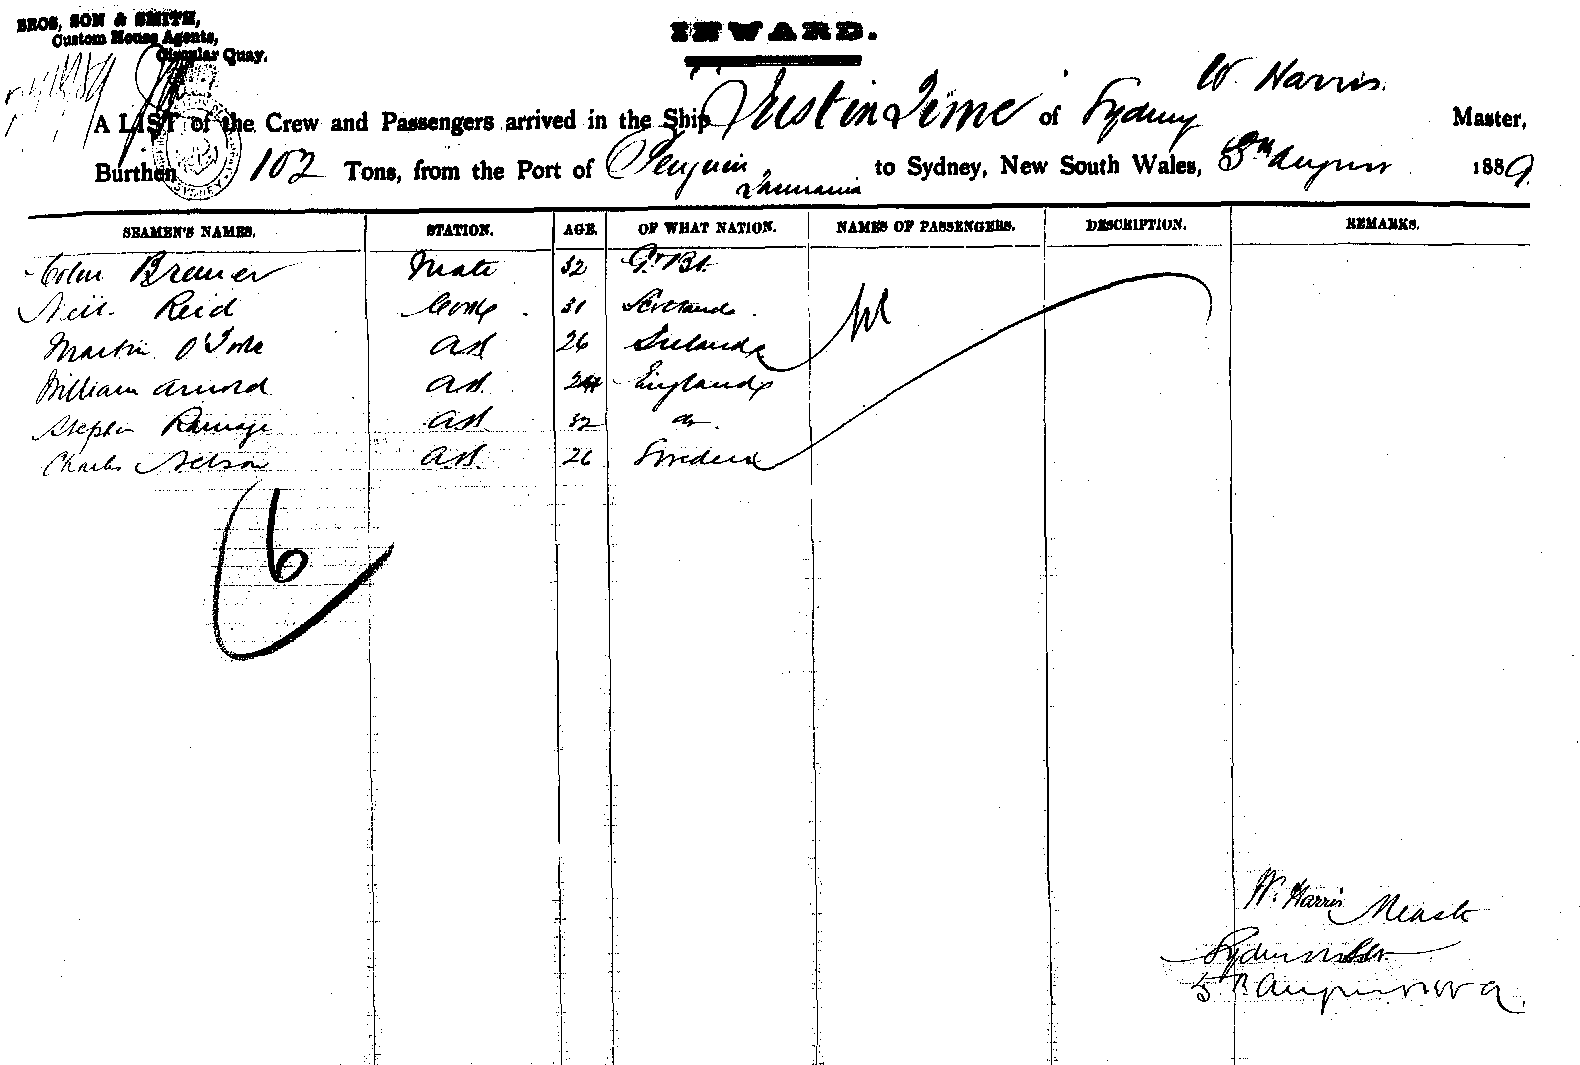 BROS, SON & SMITH,
Custom House Agents,
Circular Quay.
INWARD.
W. Harris.
A LIST of the Crew and Passengers arrived in the Ship Just in Time of Sydney Master,
Burthen 102 Tons, from the Port of Penguin, Tasmania to Sydney, New South Wales, 5th August 1889.
SEAMEN'S NAMES. STATION. AGE. OF WHAT NATION. NAMES OF PASSENGERS. DESCRIPTION. REMARKS.
Mate 32 Gt Bt.
Neil Reid Cook 31 Scotland.
Martin AB 26 Ireland Nil
William Arnold AB. 24 England
Stephen Ramage AB 32 do.
Charles Nelson AB. 26 Sweden
6
W. Harris Master
Sydney
5th August 1889.